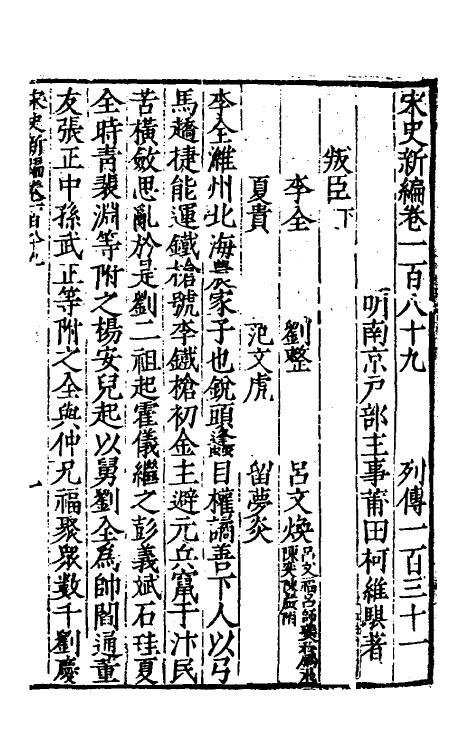 宋史新編卷一百八十九　列傳一百三十一
明南京戸部主事莆田柯維騏著
叛臣下
李全　劉整　呂文煥
夏貴　范文虎　留夢炎
李全濰州北海農家子也銳頭蠭目權譎善下人以弓
馬趫捷能運鐵槍號李鐵槍初金主避元兵竄于汴民
苦橫斂思亂於是劉二祖起霍儀繼之彭義斌石珪夏
全時青裴淵等附之楊安兒起以舅劉全為帥閻通董
友張正中孫武正等附之全與仲兄福聚眾數千劉慶
宋史新編卷一百八十九
一